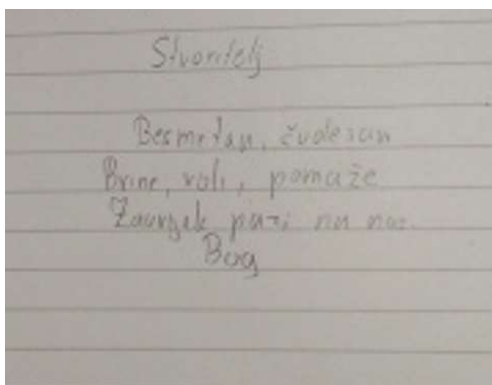 Stvoritelj
Besmrtan, čudesan
Brine, voli, pomaže
Zauvijek pazi na nas.
Bog